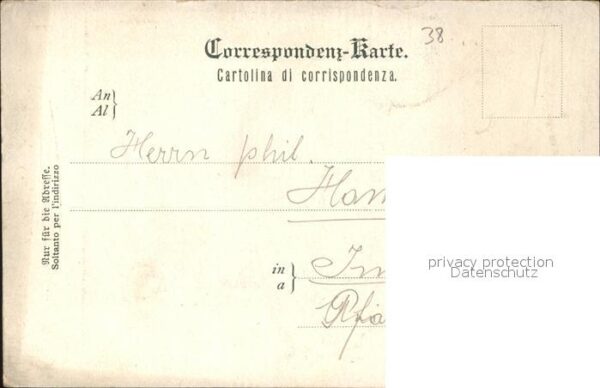 38
Correspondenz-Karte.
Cartolina di corrispondenza.
An
Al
Herrn phil.
Nur für die Adresse.
Soltanto per l'indirizzo
in
a
privacy protection
Datenschutz